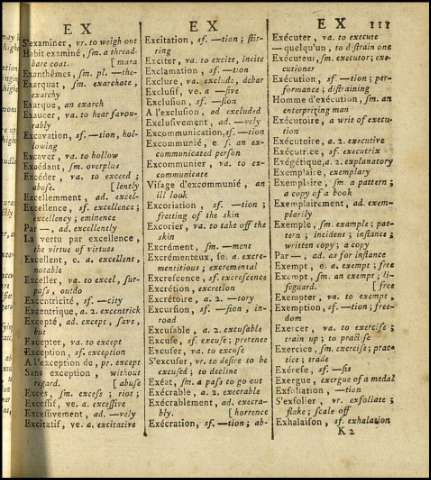 EX
S'examiner, vr. to weigh one
Habit examiné, sm. a thread-
bare coat. [mara
Exanthêmes, sm. pl. —the-
Exarquat, sm. exarchate,
exarchy
Exarque, an exarch
Exaucer, va. to hear favou-
rably
Excavation, sf. —tion; hol-
lowing
Excaver, va. to hollow
Excédant, sm. overplus
Excéder, va. to exceed;
abuse. [lently
Excellemment, ad. excel-
Excellence, sf. excellence;
excellency; eminence
Par —, ad. excellently
La vertu par excellence,
the virtue of virtues
Excellent, e. a. excellent,
notable
Exceller, va. to excel, sur-
pass, outdo
Excentricité, sf. —city
Excentrique, a. 2. excentrick
Excepté, ad. except, save,
but
Excepter, va. to except
Exception, sf. exception
A l'exception de, pr. except
Sans exception, without
regard. [abuse
Excès, sm. excess; riot;
Excessif, ve. a. excessive
Excessivement, ad. —vely
Excitatif, ve. a. excitative
EX
Excitation, sf. —tion; stir-
ring
Exciter, va. to excite, incite
Exclamation, sf. —tion
Exclure, va. exclude, debar
Exclusif, ve. a —sive
Exclusion, sf. —sion
A l'exclusion, ad excluded
Exclusivement, ad. —vely
Excommunication, sf. —tion
Excommunié, e, s. an ex-
communicated person
Excommunier, va. to ex-
communicate
Visage d'excommunié, an
ill look
Excoriation, sf. —tion;
fretting of the skin
Excorier, va. to take off the
skin
Excrément, sm. —ment
Excrémenteux, se. a. excre-
mentitious; excremental
Excrescence, sf. excrescence
Excrétion, excretion
Excrétoire, a. 2. —tory
Excursion, sf. —sion, in-
road
Excusable, a. 2. excusable
Excuse, sf. excuse; pretence
Excuser, va. to excuse
S'excuser, vr. to desire to be
excused; to decline
Exéat, sm. a pass to go out
Exécrable, a. 2. execrable
Exécrablement, ad. execra-
bly. [horrence
Exécration, sf. —tion; ab-
EX 111
Exécuter, va. to execute
— quelqu'un, to distrain one
Exécuteur, sm. executor; exe-
cutioner
Exécution, sf. —tion; per-
formance; distraining
Homme d'exécution, sm. an
enterprizing man
Exécutoire, a writ of execu-
tion
Exécutoire, a. 2. executive
Exécutrice, sf. executrix
Exégétique, a. 2. explanatory
Exemplaire, exemplary
Exemplaire, sm. a pattern;
a copy of a book
Exemplairement, ad. exem-
plarily
Exemple, sm. example; pat-
tern; incidence; instance;
written copy; a copy
Par —, ad. as for instance
Exempt, e. a. exempt; free
Exempt, sm. an exempt; li-
feguard. [free
Exempter, va. to exempt,
Exemption, sf. —tion; free-
dom
Exercer, va. to exercise;
train up; to practise
Exercice, sm. exercise; prac-
tice; trade
Exérèse, sf. —sis
Exergue, exergue of a medal
Exfoliation, —tion
S'exfolier, vr. exfoliate;
flake; scale off
Exhalaison, sf. exhalation
K 2